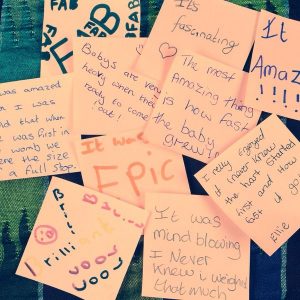 FAB
FAB
FAB
Its
fascinating
It
Amaz
!!!!!
Babys are very
heavy when their
ready to come
out!
The most
Amazing thing
is how fast
the baby
grew
was amazed
n I was
nd that when
was first in
womb we
ere the size
a full stop.
It was
EPic
I really enjoyed
it I never knew
the hart started
first and How
fast it go
Ellie
Brilliant
It was
mind blowing
I Never
Knew i weighed
that much